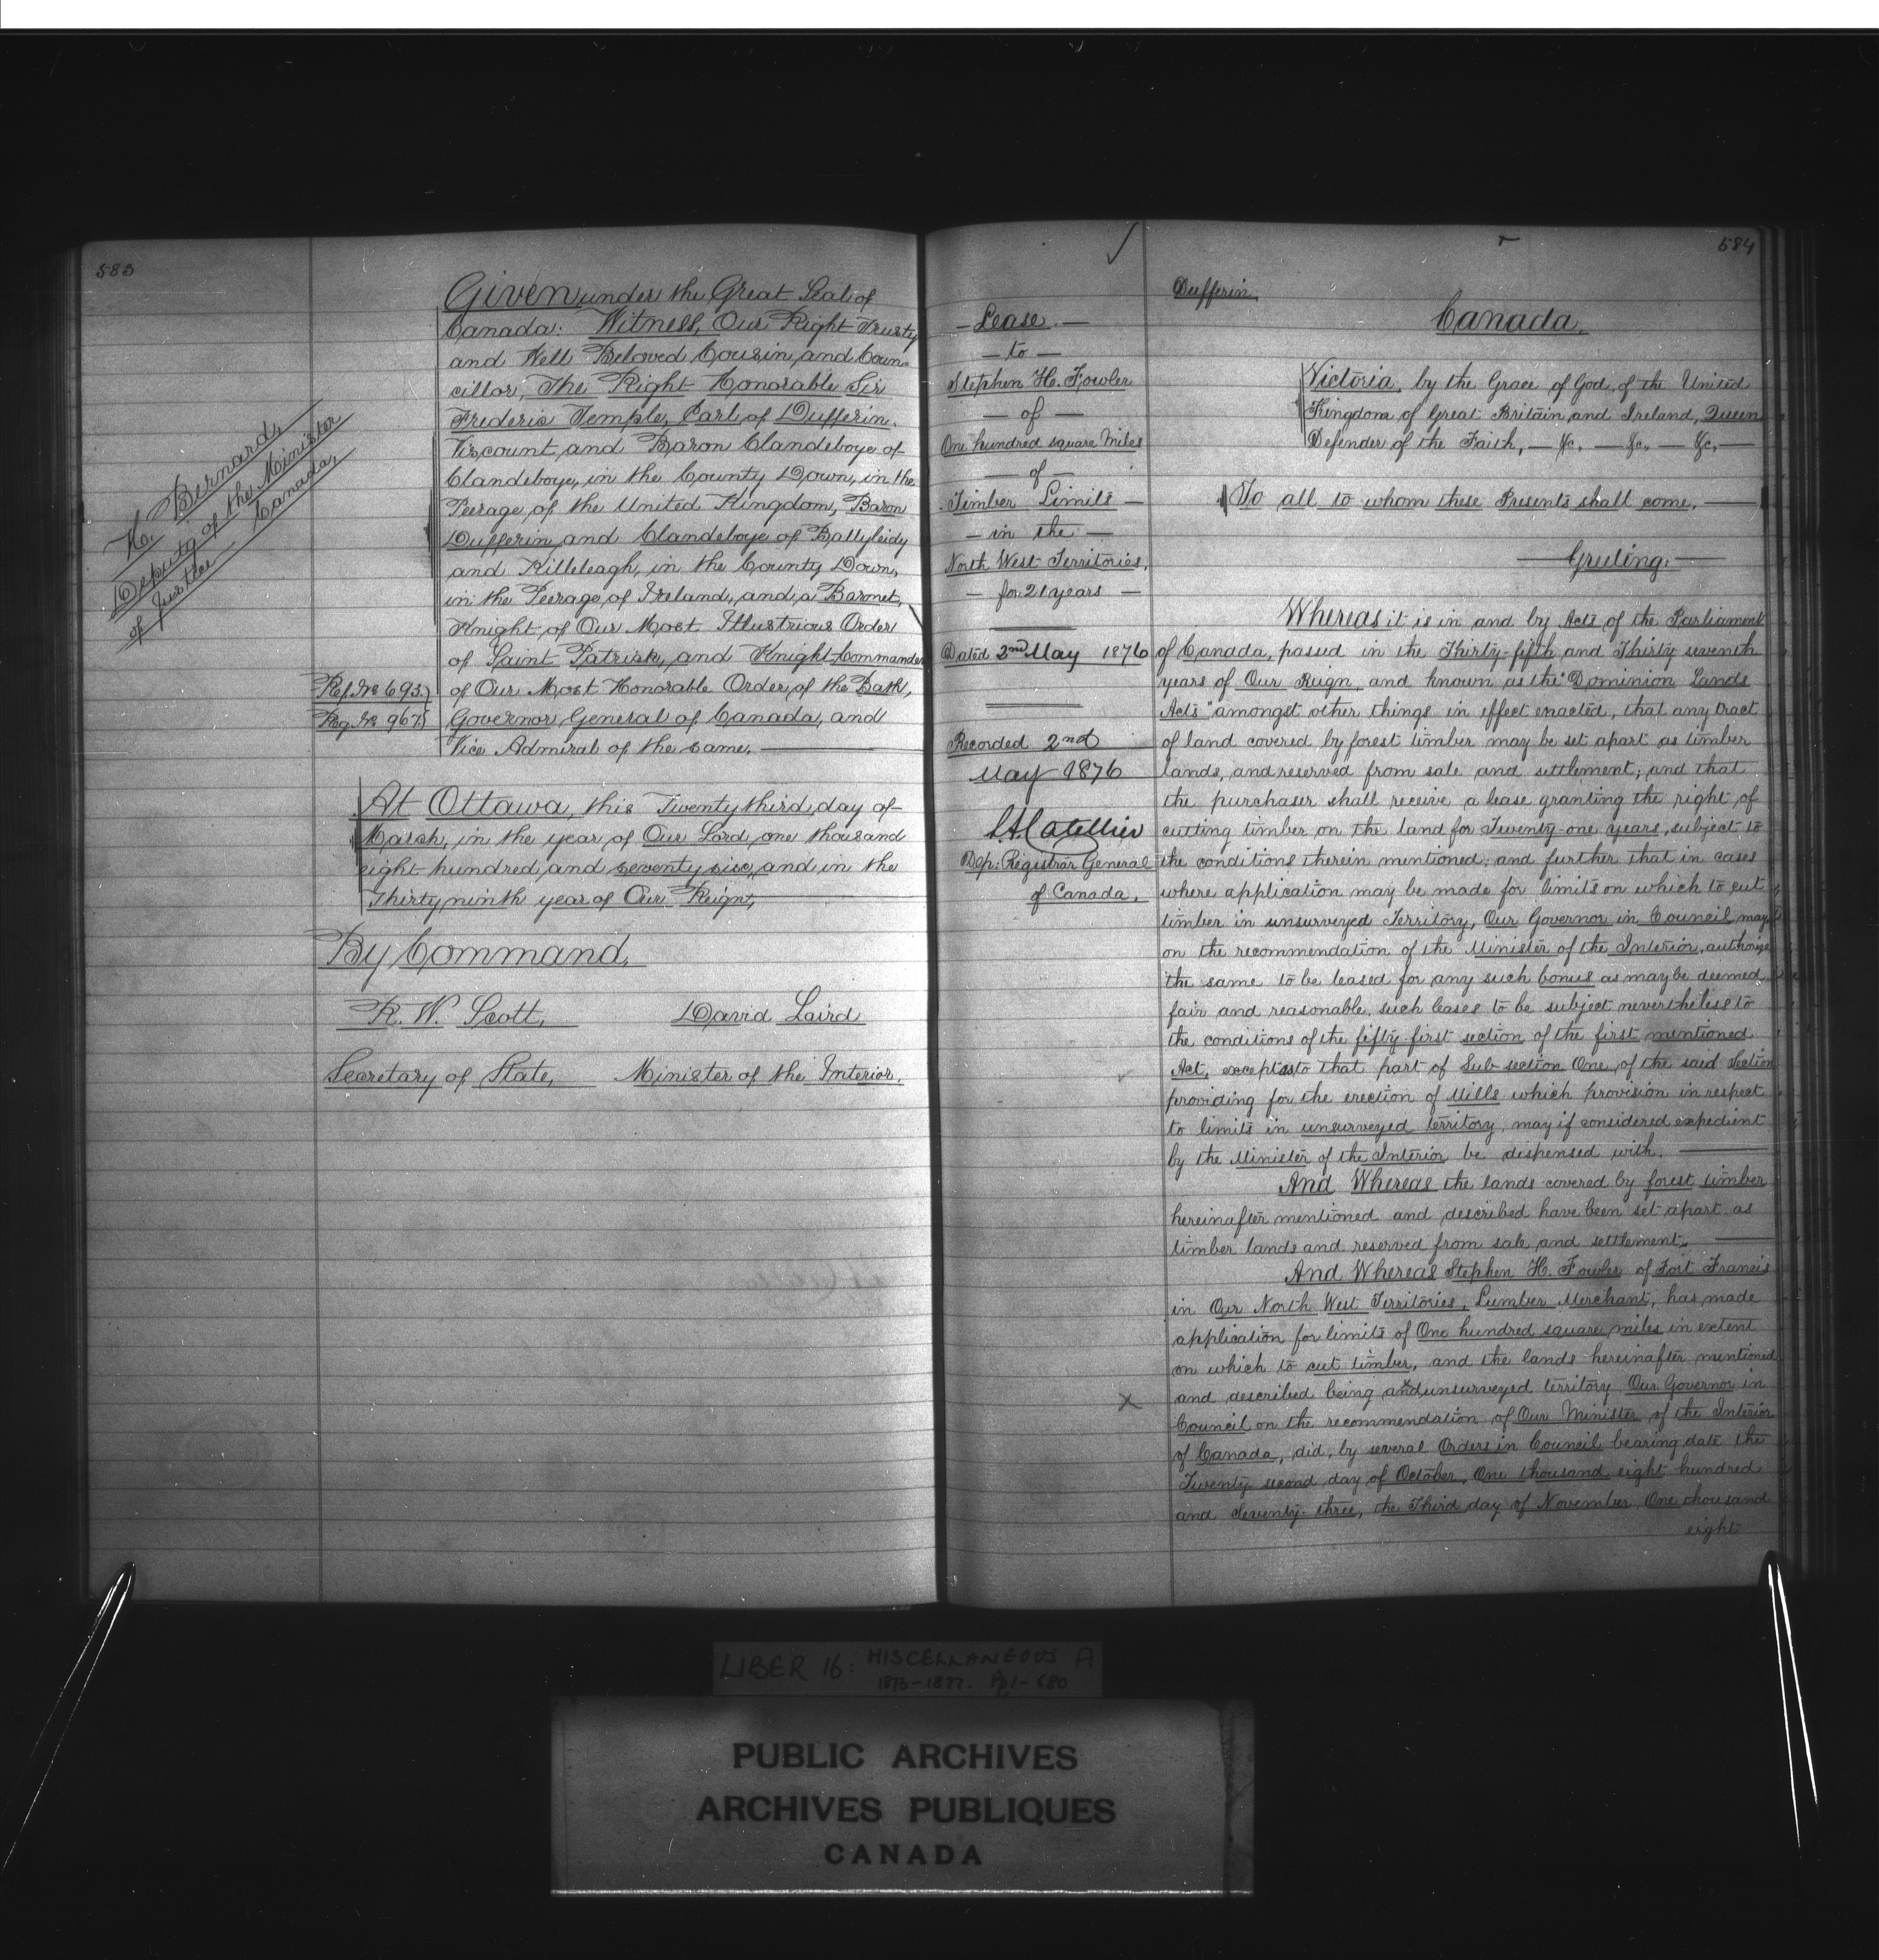 583
H. Bernard,
Deputy of the Minister
of Justice Canada,
Ref. No 693.
Reg. No 967.
Given under the Great Seal of
Canada: Witness, Our Right Trusty
and Well Beloved Cousin, and Coun-
cillor, The Right Honorable Sir
Frederic Temple, Earl of Dufferin.
Viscount and Baron Clandeboye of
Clandeboye, in the County Down, in the
Peerage of the United Kingdom, Baron
Dufferin and Clandeboye of Ballyleidy
and Killeleagh, in the County Down,
in the Peerage of Ireland, and a Baronet,
Knight of Our Most Illustrious Order
of Saint Patrick, and Knight Commander
of Our Most Honorable Order of the Bath,
Governor General of Canada, and
Vice Admiral of the same.
At Ottawa, this Twenty third, day of
March, in the year of Our Lord, one thousand
eight hundred and seventy six, and in the
Thirty ninth year of Our Reign,
By Command,
R. W. Scott, David Laird
Secretary of State, Minister of the Interior.
584
Lease.
to
Stephen H. Fowler
of
One hundred square Miles
of
Timber Limits
in the
North West Territories,
for 21 years
Dated 2nd May 1876
Recorded 2nd
May 1876
Dep: Registrar General
of Canada.
Dufferin
Canada.
Victoria, by the Grace of God, of the United
Kingdom of Great Britain and Ireland, Queen
Defender of the Faith, — &c. — &c. — &c. —
To all to whom these Presents shall come.
Greeting:
Whereas it is in and by Acts of the Parliament
of Canada, passed in the Thirty-fifth and Thirty seventh
years of Our Reign, and known as the "Dominion Lands
Acts" amongst other things in effect enacted, that any tract
of land covered by forest timber may be set apart as timber
lands, and reserved from sale and settlement; and that
the purchaser shall receive a lease granting the right of
cutting timber on the land for Twenty-one years, subject to
the conditions therein mentioned; and further that in cases
where application may be made for limits on which to cut
timber in unsurveyed Territory, Our Governor in Council may
on the recommendation of the Minister of the Interior, authorize
the same to be leased for any such bonus as may be deemed
fair and reasonable, such leases to be subject nevertheless to
the conditions of the fifty-first section of the first mentioned
Act, except as to that part of Sub section One, of the said Section
providing for the erection of Mills which provision in respect
to limits in unsurveyed territory, may if considered expedient
by the Minister of the Interior be dispensed with.
And Whereas the lands covered by forest timber
hereinafter mentioned and described have been set apart as
timber lands and reserved from sale and settlement.
And Whereas Stephen H. Fowler of Fort Francis
in Our North West Territories, Lumber Merchant, has made
application for limits of One hundred square miles in extent
on which to cut timber, and the lands hereinafter mentioned
and described being and unsurveyed territory Our Governor in
Council on the recommendation of Our Minister of the Interior
of Canada, did, by several Orders in Council bearing date the
Twenty second day of October, One thousand eight hundred
and Seventy-three, the Third day of November, One thousand
eight
LIBER 16: MISCELLANEOUS A
1873-1877. Pp 1-680
PUBLIC ARCHIVES
ARCHIVES PUBLIQUES
CANADA